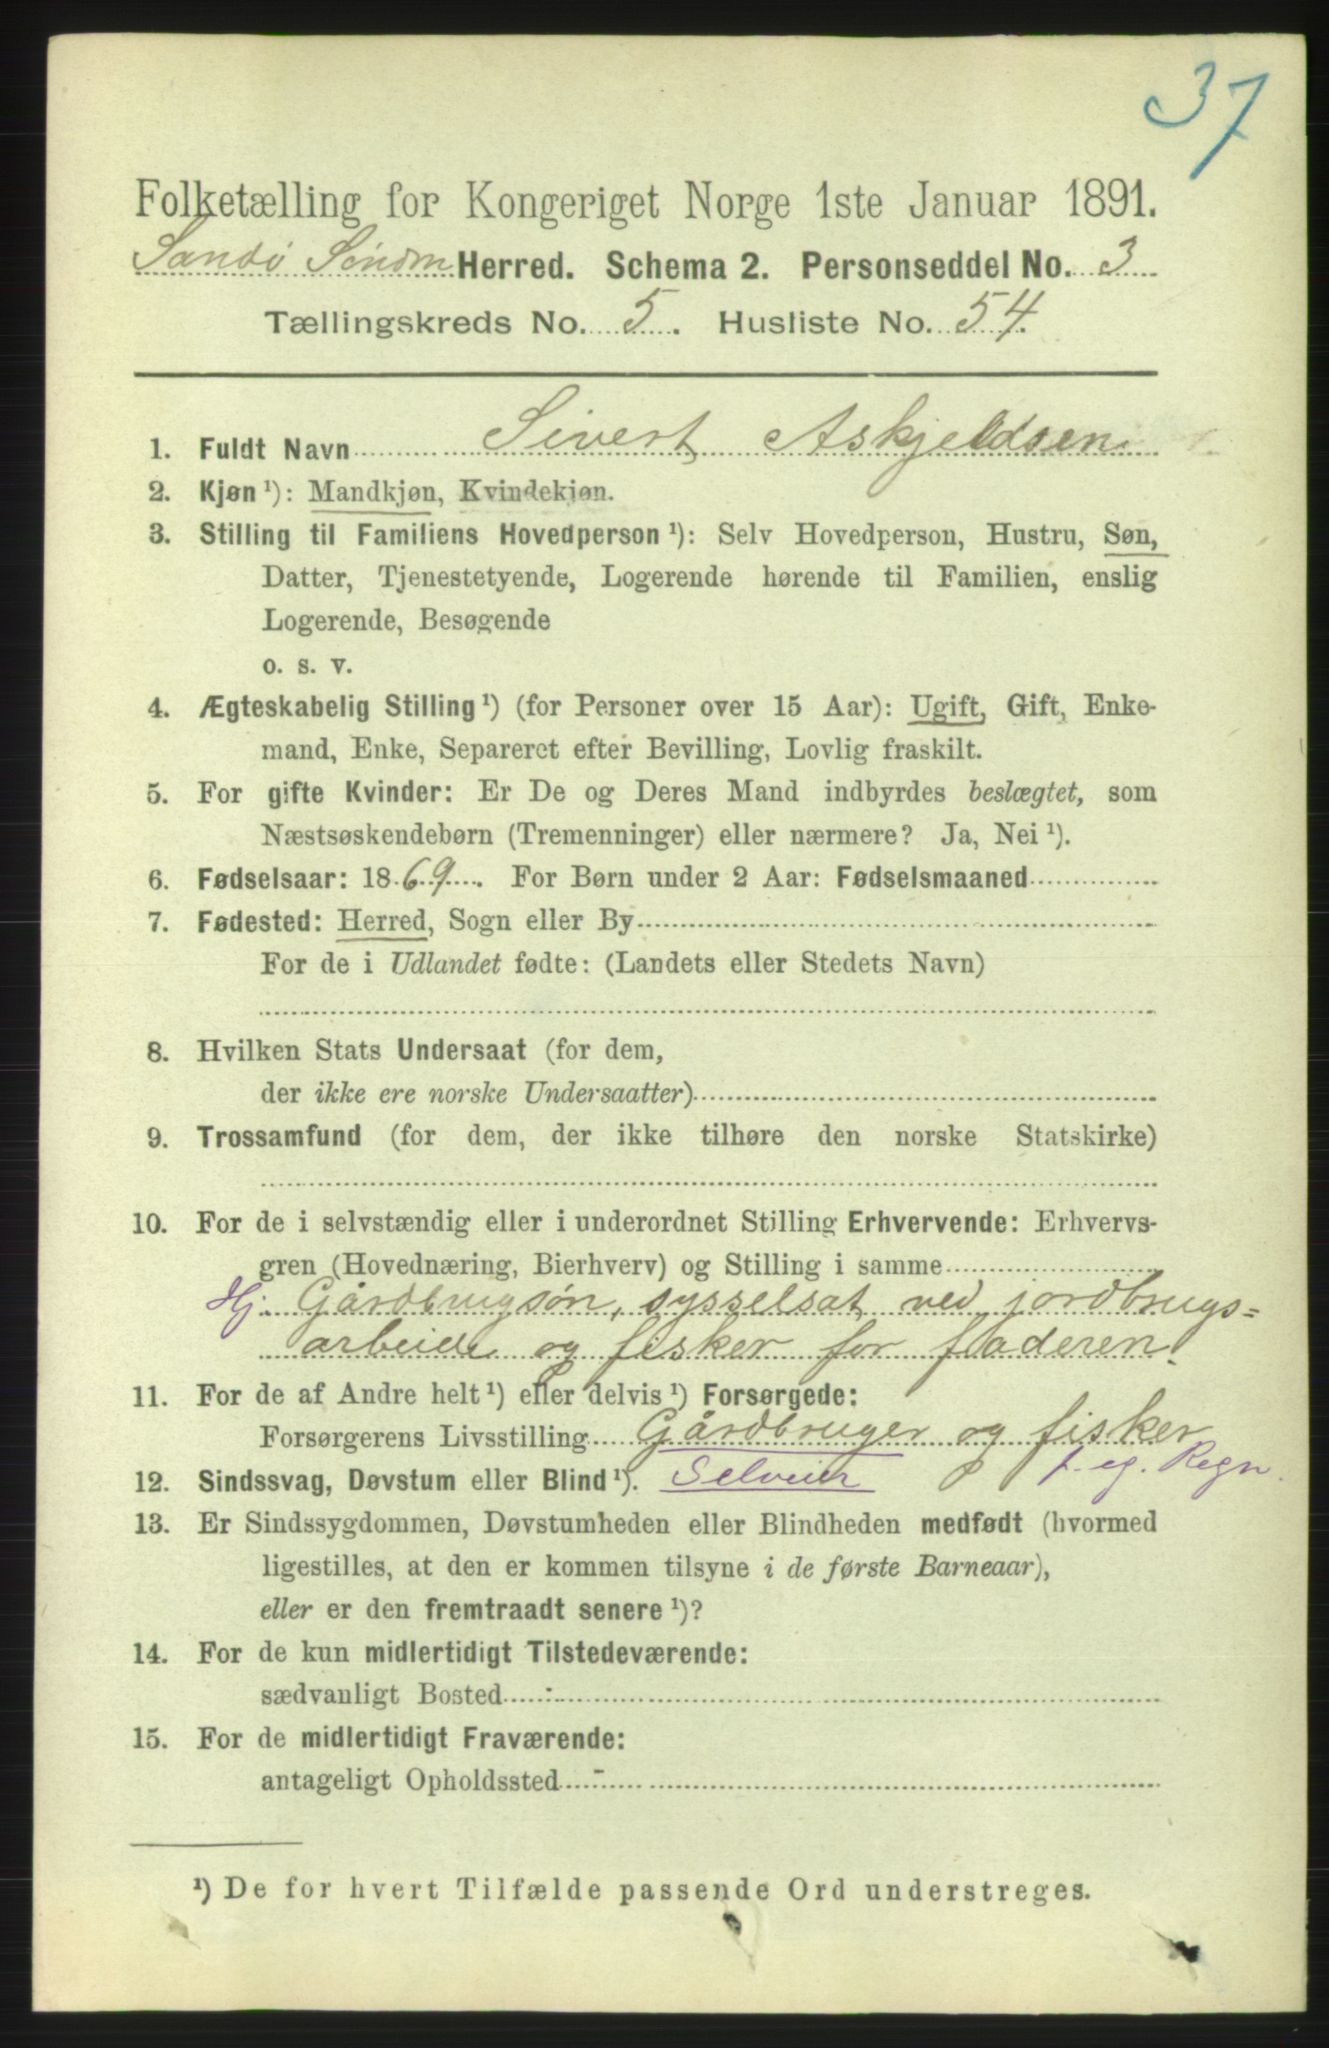 37
Folketælling for Kongeriget Norge 1ste Januar 1891.
Sandø Söndm Herred. Schema 2. Personseddel No. 3
Tællingskreds No. 5. Husliste No. 54.
1. Fuldt Navn Sivert Askjeldsen
2. Kjøn ¹): Mandkjøn, Kvindekjøn.
3. Stilling til Familiens Hovedperson ¹): Selv Hovedperson, Hustru, Søn,
Datter, Tjenestetyende, Logerende hørende til Familien, enslig
Logerende, Besøgende
o. s. v.
4. Ægteskabelig Stilling ¹) (for Personer over 15 Aar): Ugift, Gift, Enke-
mand, Enke, Separeret efter Bevilling, Lovlig fraskilt.
5. For gifte Kvinder: Er De og Deres Mand indbyrdes beslægtet, som
Næstsøskendebørn (Tremenninger) eller nærmere? Ja, Nei ¹).
6. Fødselsaar: 1869. For Børn under 2 Aar: Fødselsmaaned
7. Fødested: Herred, Sogn eller By
For de i Udlandet fødte: (Landets eller Stedets Navn)
8. Hvilken Stats Undersaat (for dem,
der ikke ere norske Undersaatter)
9. Trossamfund (for dem, der ikke tilhøre den norske Statskirke)
10. For de i selvstændig eller i underordnet Stilling Erhvervende: Erhvervs-
gren (Hovednæring, Bierhverv) og Stilling i samme
Hj. Gårdbrugsøn, sysselsat ved jordbrugs=
arbeide og fisker for faderen.
11. For de af Andre helt ¹) eller delvis ¹) Forsørgede:
Forsørgerens Livsstilling Gårdbruger og fisker
12. Sindssvag, Døvstum eller Blind ¹). Selveier f. eg. Regn.
13. Er Sindssygdommen, Døvstumheden eller Blindheden medfødt (hvormed
ligestilles, at den er kommen tilsyne i de første Barneaar),
eller er den fremtraadt senere ¹)?
14. For de kun midlertidigt Tilstedeværende:
sædvanligt Bosted
15. For de midlertidigt Fraværende:
antageligt Opholdssted
¹) De for hvert Tilfælde passende Ord understreges.